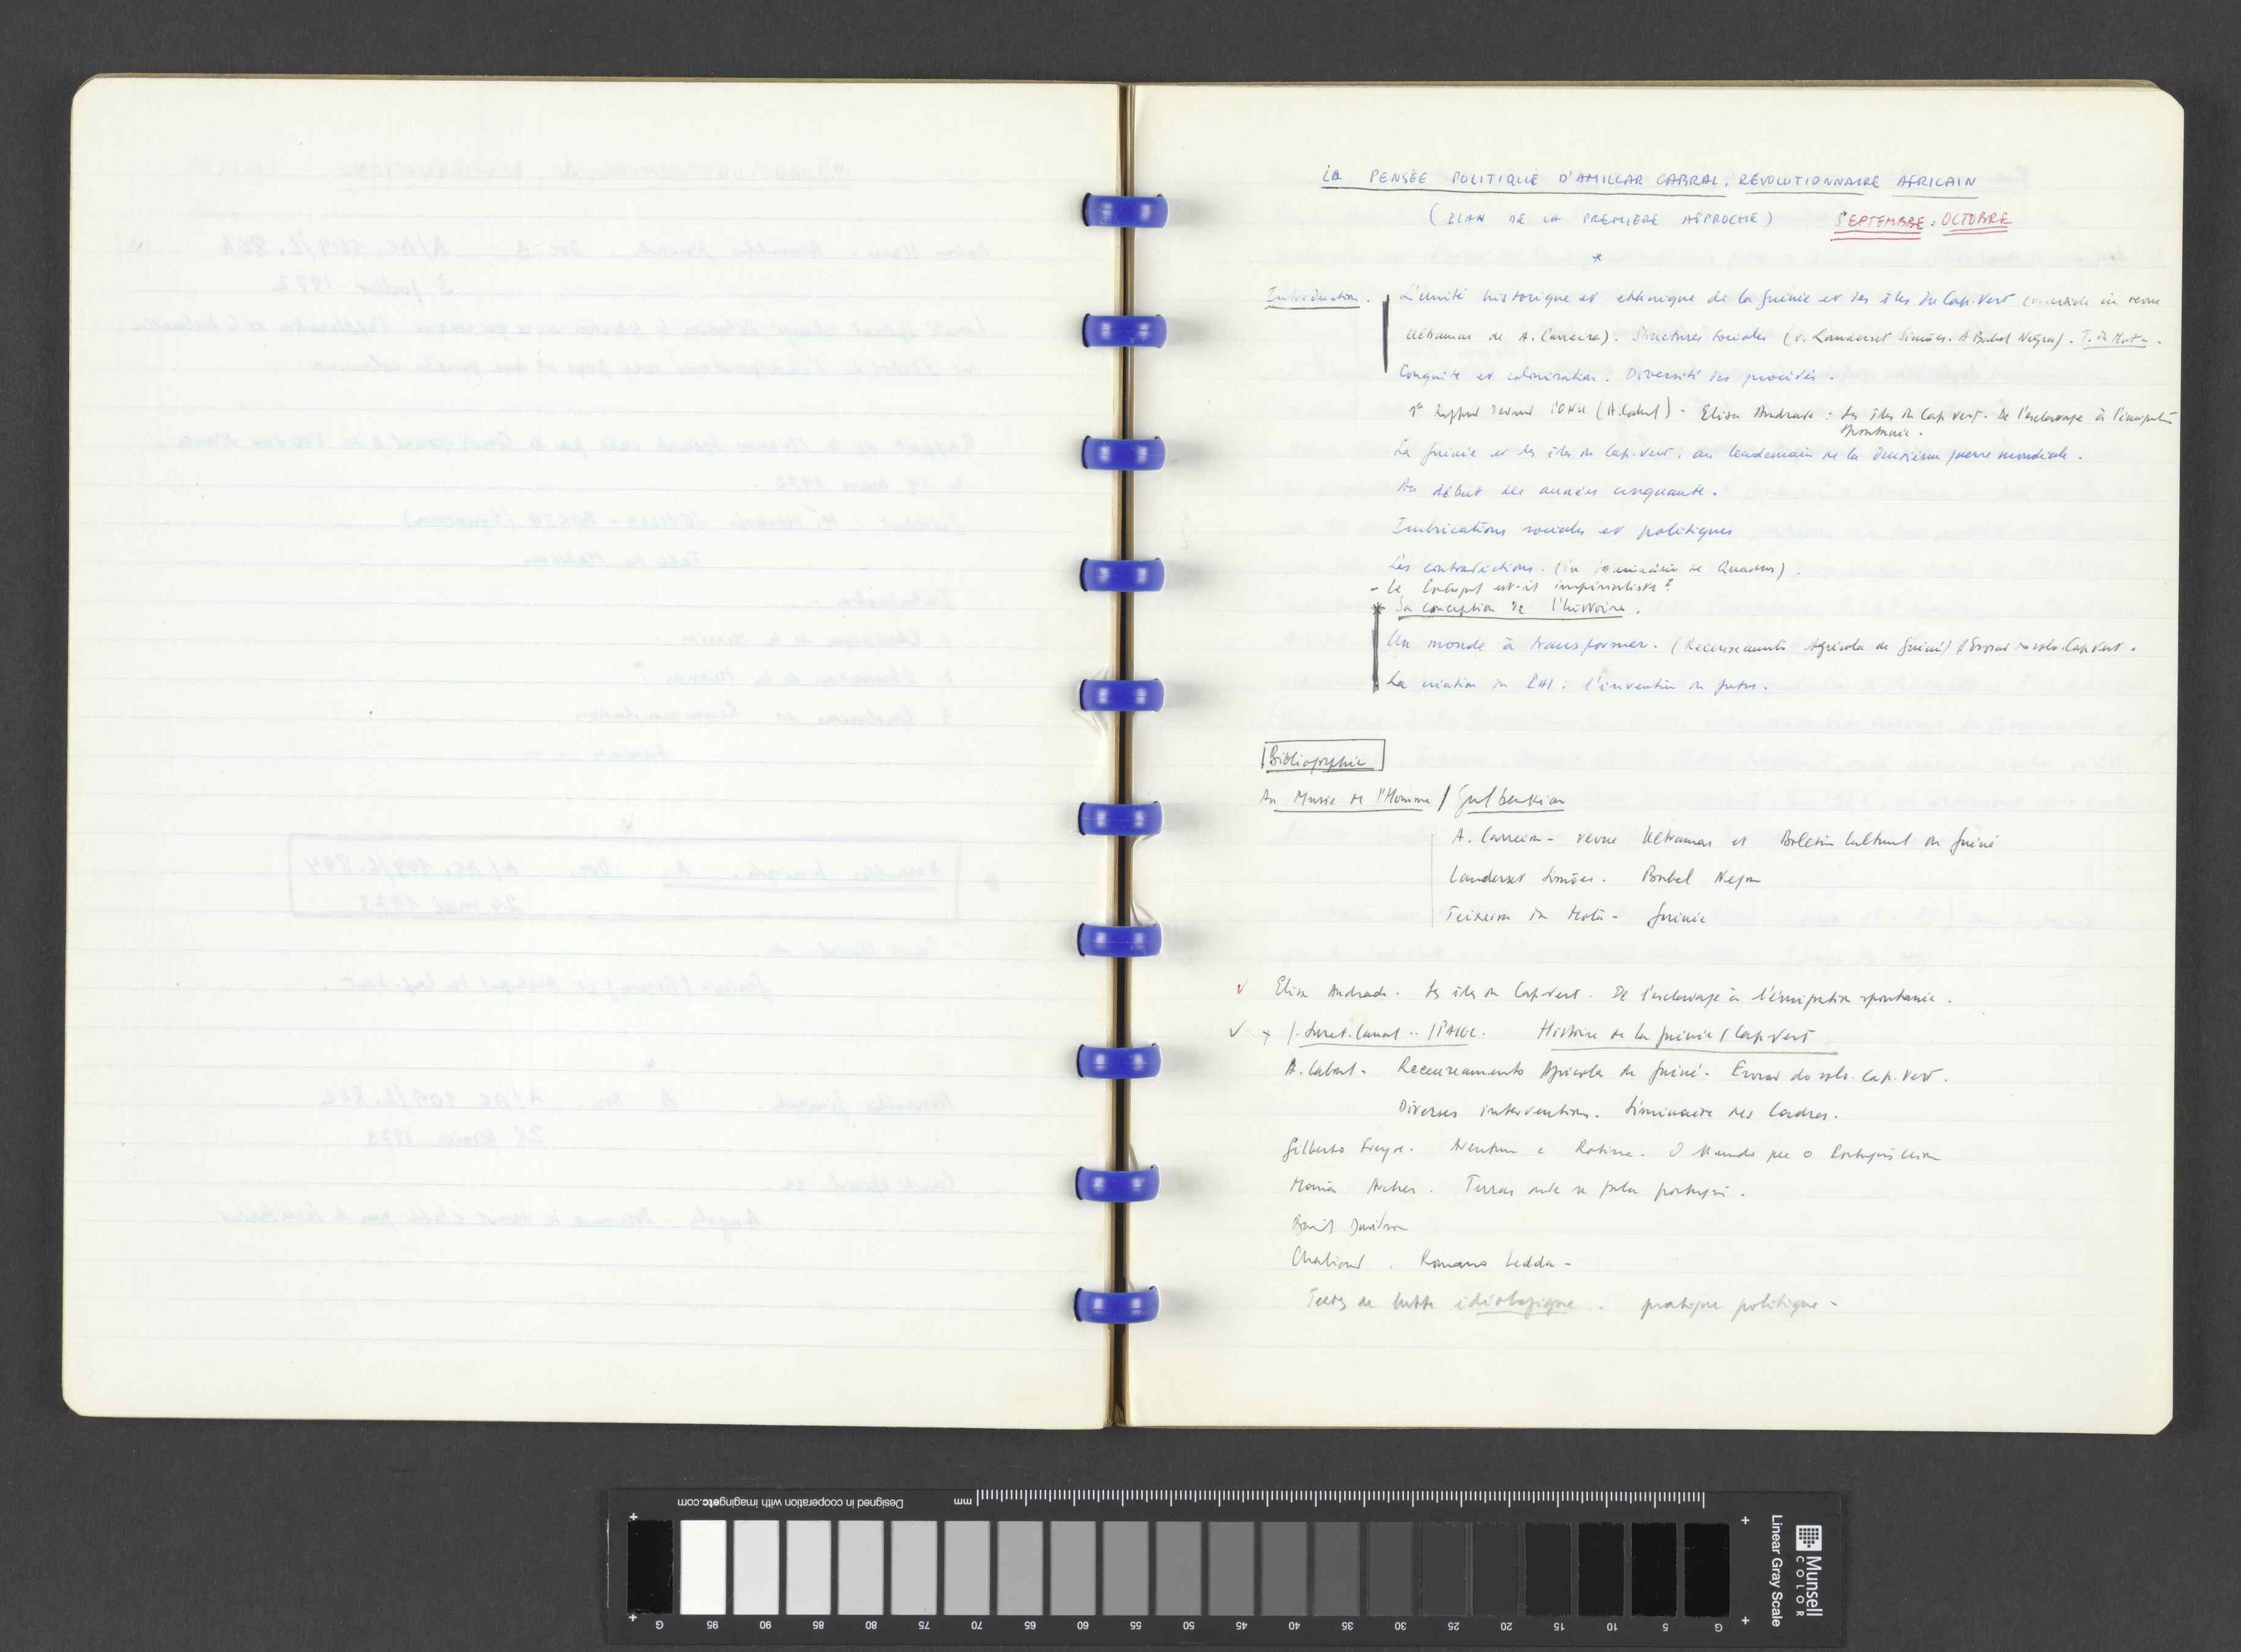 LA PENSÉE POLITIQUE D'AMILCAR CABRAL, RÉVOLUTIONNAIRE AFRICAIN
(PLAN DE LA PREMIÈRE APPROCHE) SEPTEMBRE. OCTOBRE
*
Introduction. L'unité historique et ethnique de la Guinée et des îles du Cap-Vert (v. article in revue
Ultramar de A. Carreira). Structures sociales (v. Landerset Simões. A Babel Negra). T. da Mota.
Conquête et colonisation. Diversité des procédés.
1er Rapport devant l'ONU (A. Cabral). Elisa Andrade: Les îles du Cap Vert. De l'esclavage à l'émigration
spontanée.
La Guinée et les îles du Cap-Vert, au lendemain de la deuxième guerre mondiale.
Au début des années cinquante.
Imbrications sociales et politiques
Les contradictions. (in séminaire de Quadros).
- Le Portugal est-il impérialiste?
* Sa conception de l'histoire.
Un monde à transformer. (Recenseamento Agrícola da Guiné) / Erosão do solo. Cap Vert.
La création du PAI: l'invention du futur.
Bibliographie
Au Musée de l'Homme / Gulbenkian
A. Carreira - revue Ultramar et Boletim Cultural da Guiné
Landerset Simões. Babel Negra
Teixeira da Mota - Guinée
✓ Elisa Andrade. Les îles du Cap-Vert. De l'esclavage à l'émigration spontanée.
✓ + J. Suret-Canal .. / PAIGC. Histoire de la Guinée / Cap-Vert
A. Cabral. Recenseamento Agrícola da Guiné. Erosão do solo. Cap. Vert.
Diverses interventions. Séminaire des Cadres.
Gilberto Freyre. Aventura e Rotina. O Mundo que o Português criou
Maria Archer. Terras onde se fala português.
Basil Davidson
Chaliand. Romano Ledda -
Textes de lutte idéologique. pratique politique -
Designed in cooperation with imagingetc.com
mm
Munsell
COLOR
Linear Gray Scale
G 95 90 85 80 75 70 65 60 55 50 45 40 35 30 25 20 15 10 5 G